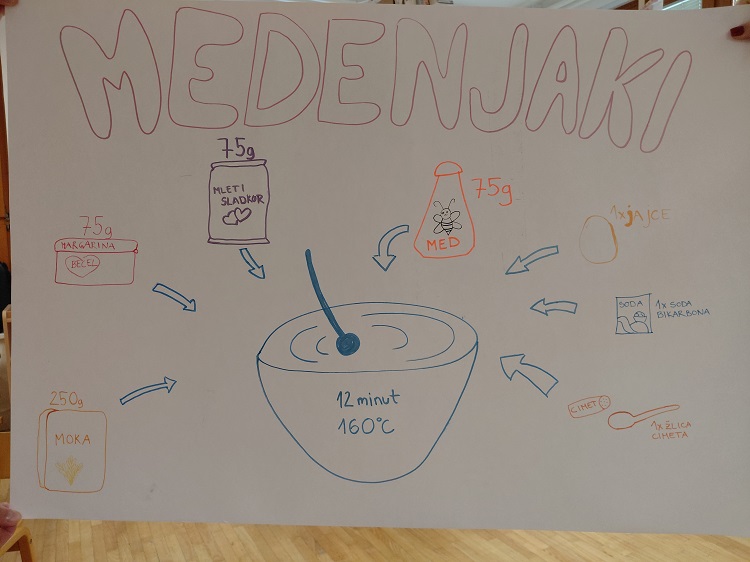 MEDENJAKI
75g
MLETI
SLADKOR
75g
MED
1x JAJCE
75g
MARGARINA
BEZEL
SODA
1x SODA
BIKARBONA
12 minut
160°C
250g
MOKA
CIMET
1x ŽLICA
CIMETA